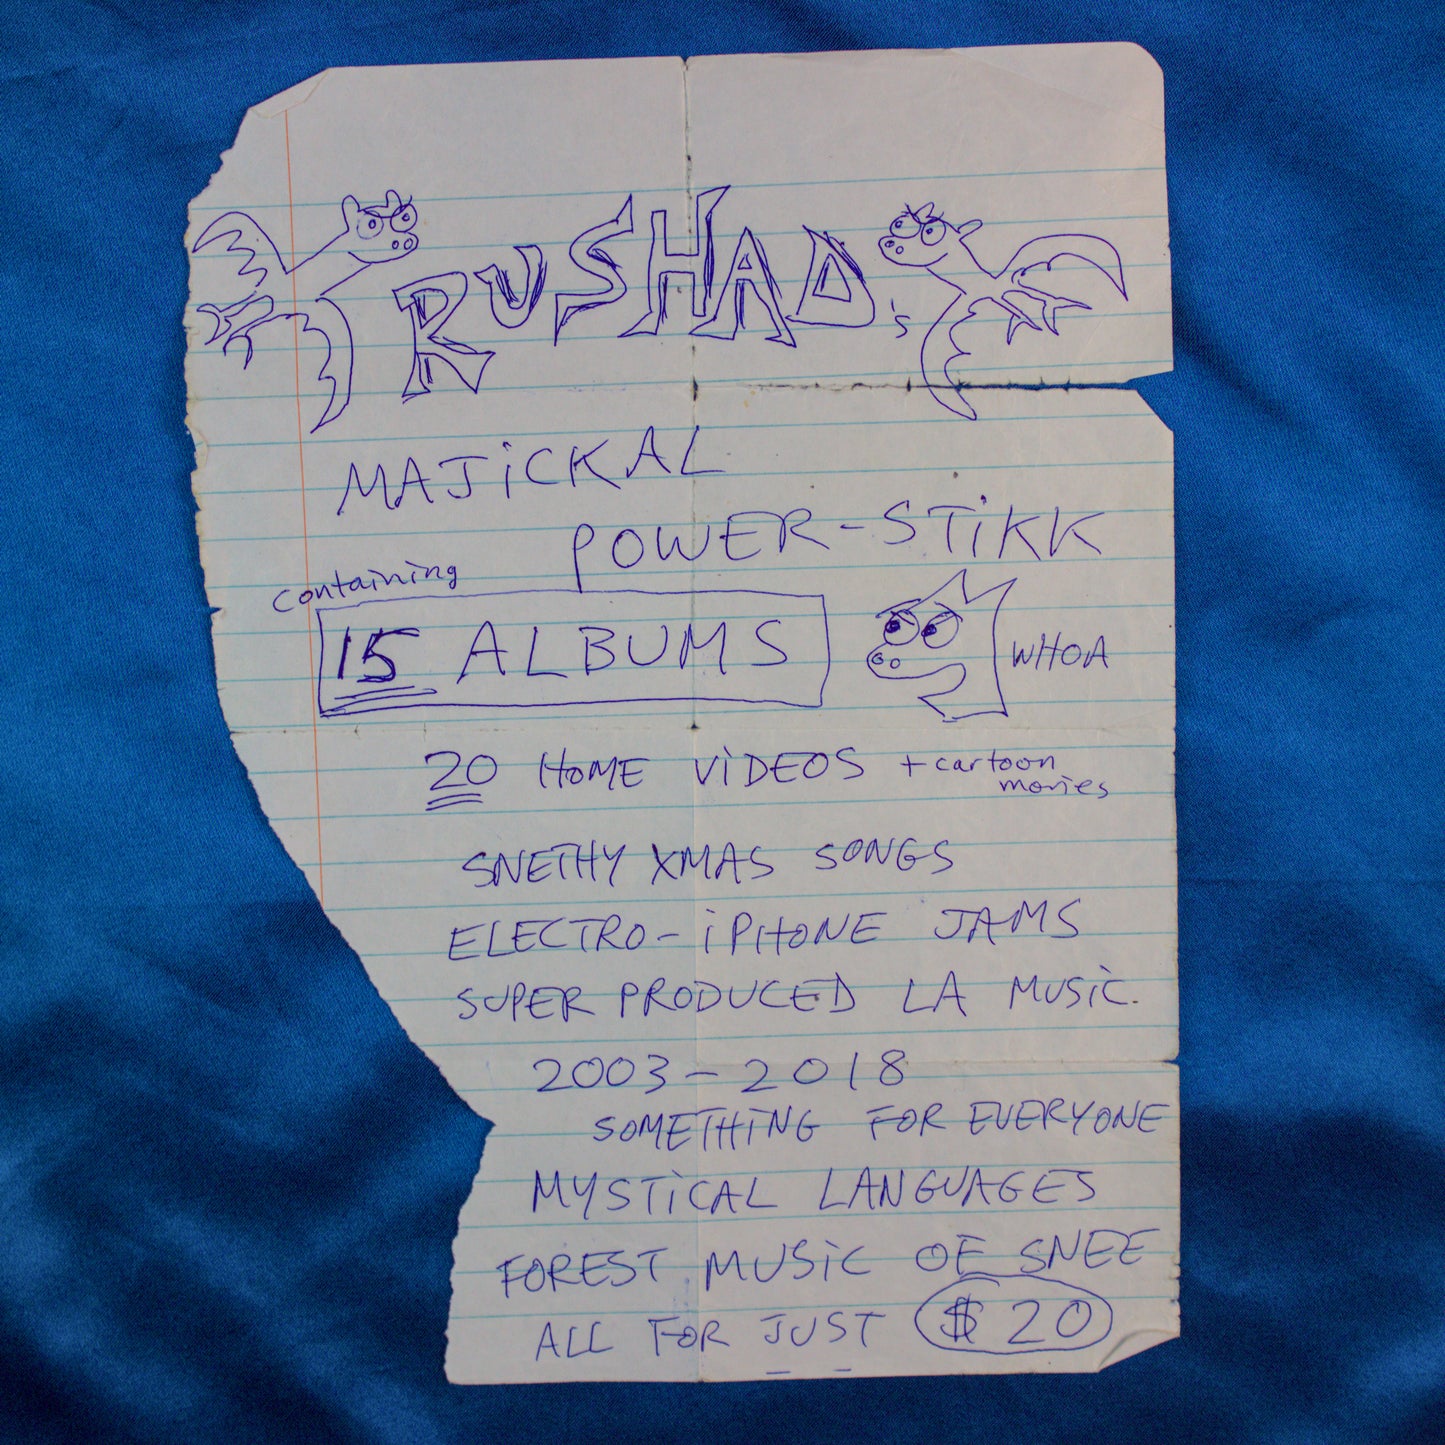 RUSHAD's
MAJiCKAL
POWER-STiKK
containing
15 ALBUMS
WHOA
20 HOME ViDEOS + cartoon
movies
SNETHY XMAS SONGS
ELECTRO-iPHONE JAMS
SUPER PRODUCED LA MUSiC.
2003-2018
SOMETHiNG FOR EVERYONE
MYSTiCAL LANGUAGES
FOREST MUSiC OF SNEE
ALL FOR JUST $20